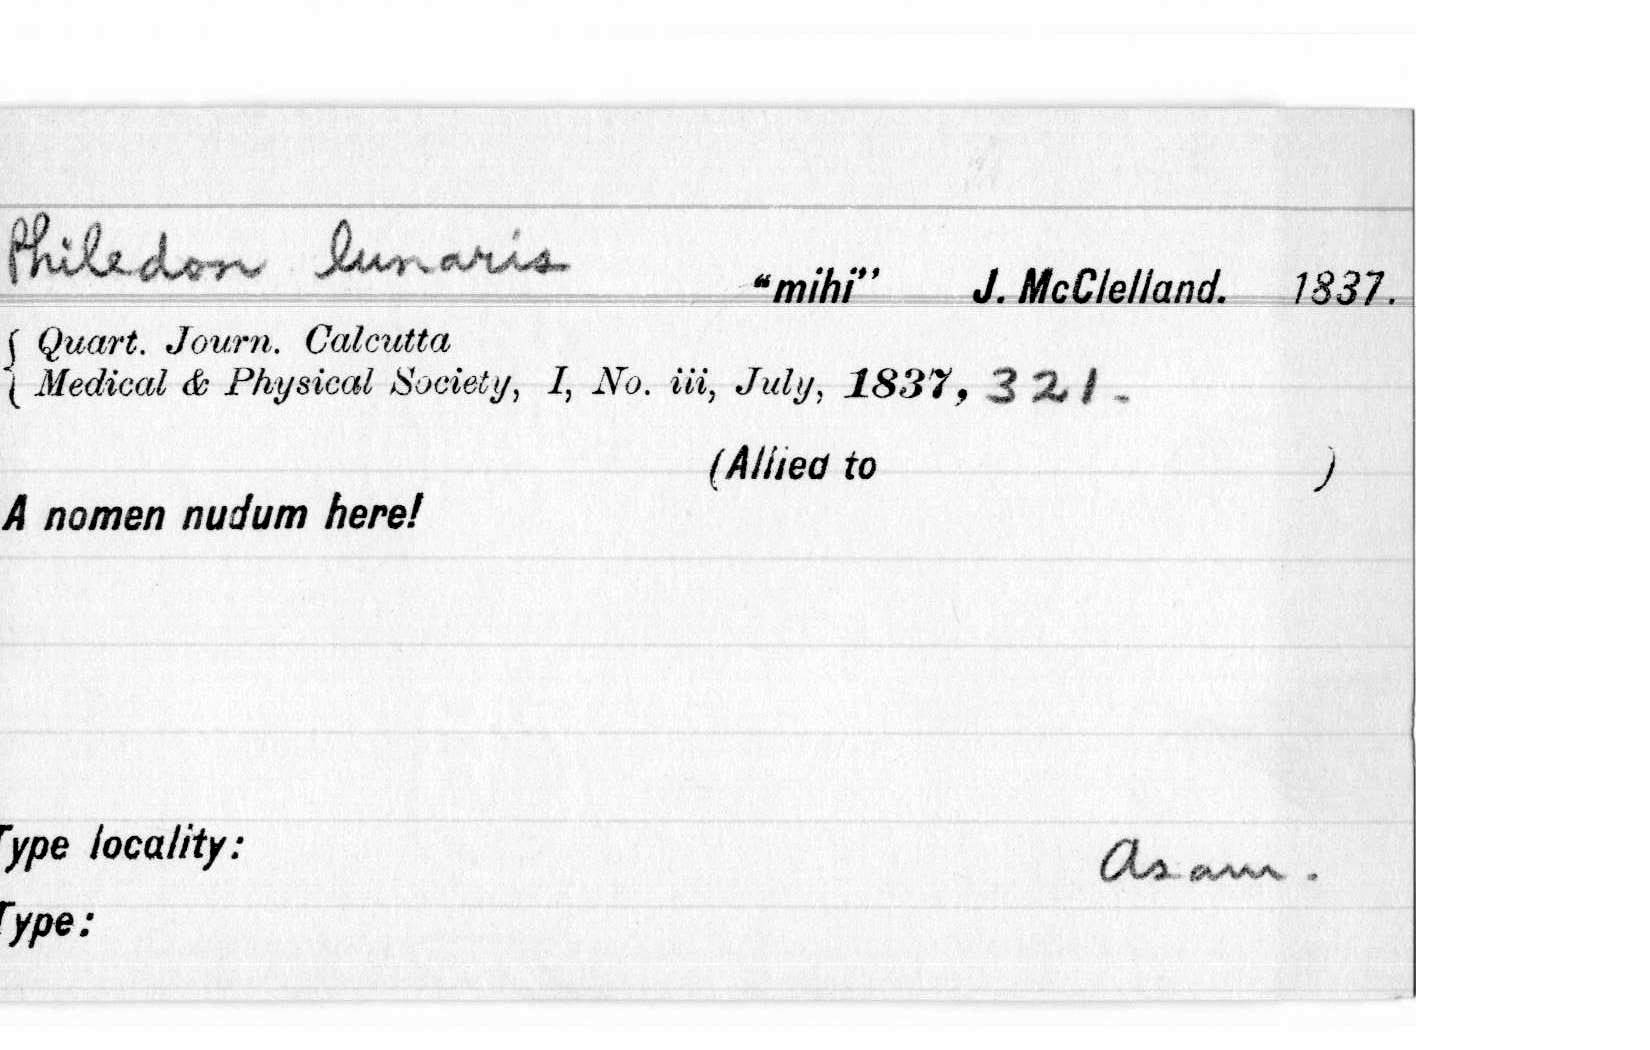 Philedon lunaris "mihi" J. McClelland. 1837.
{ Quart. Journ. Calcutta
{ Medical & Physical Society, I, No. iii, July, 1837, 321.
(Allied to )
A nomen nudum here!
Type locality: Asam.
Type: